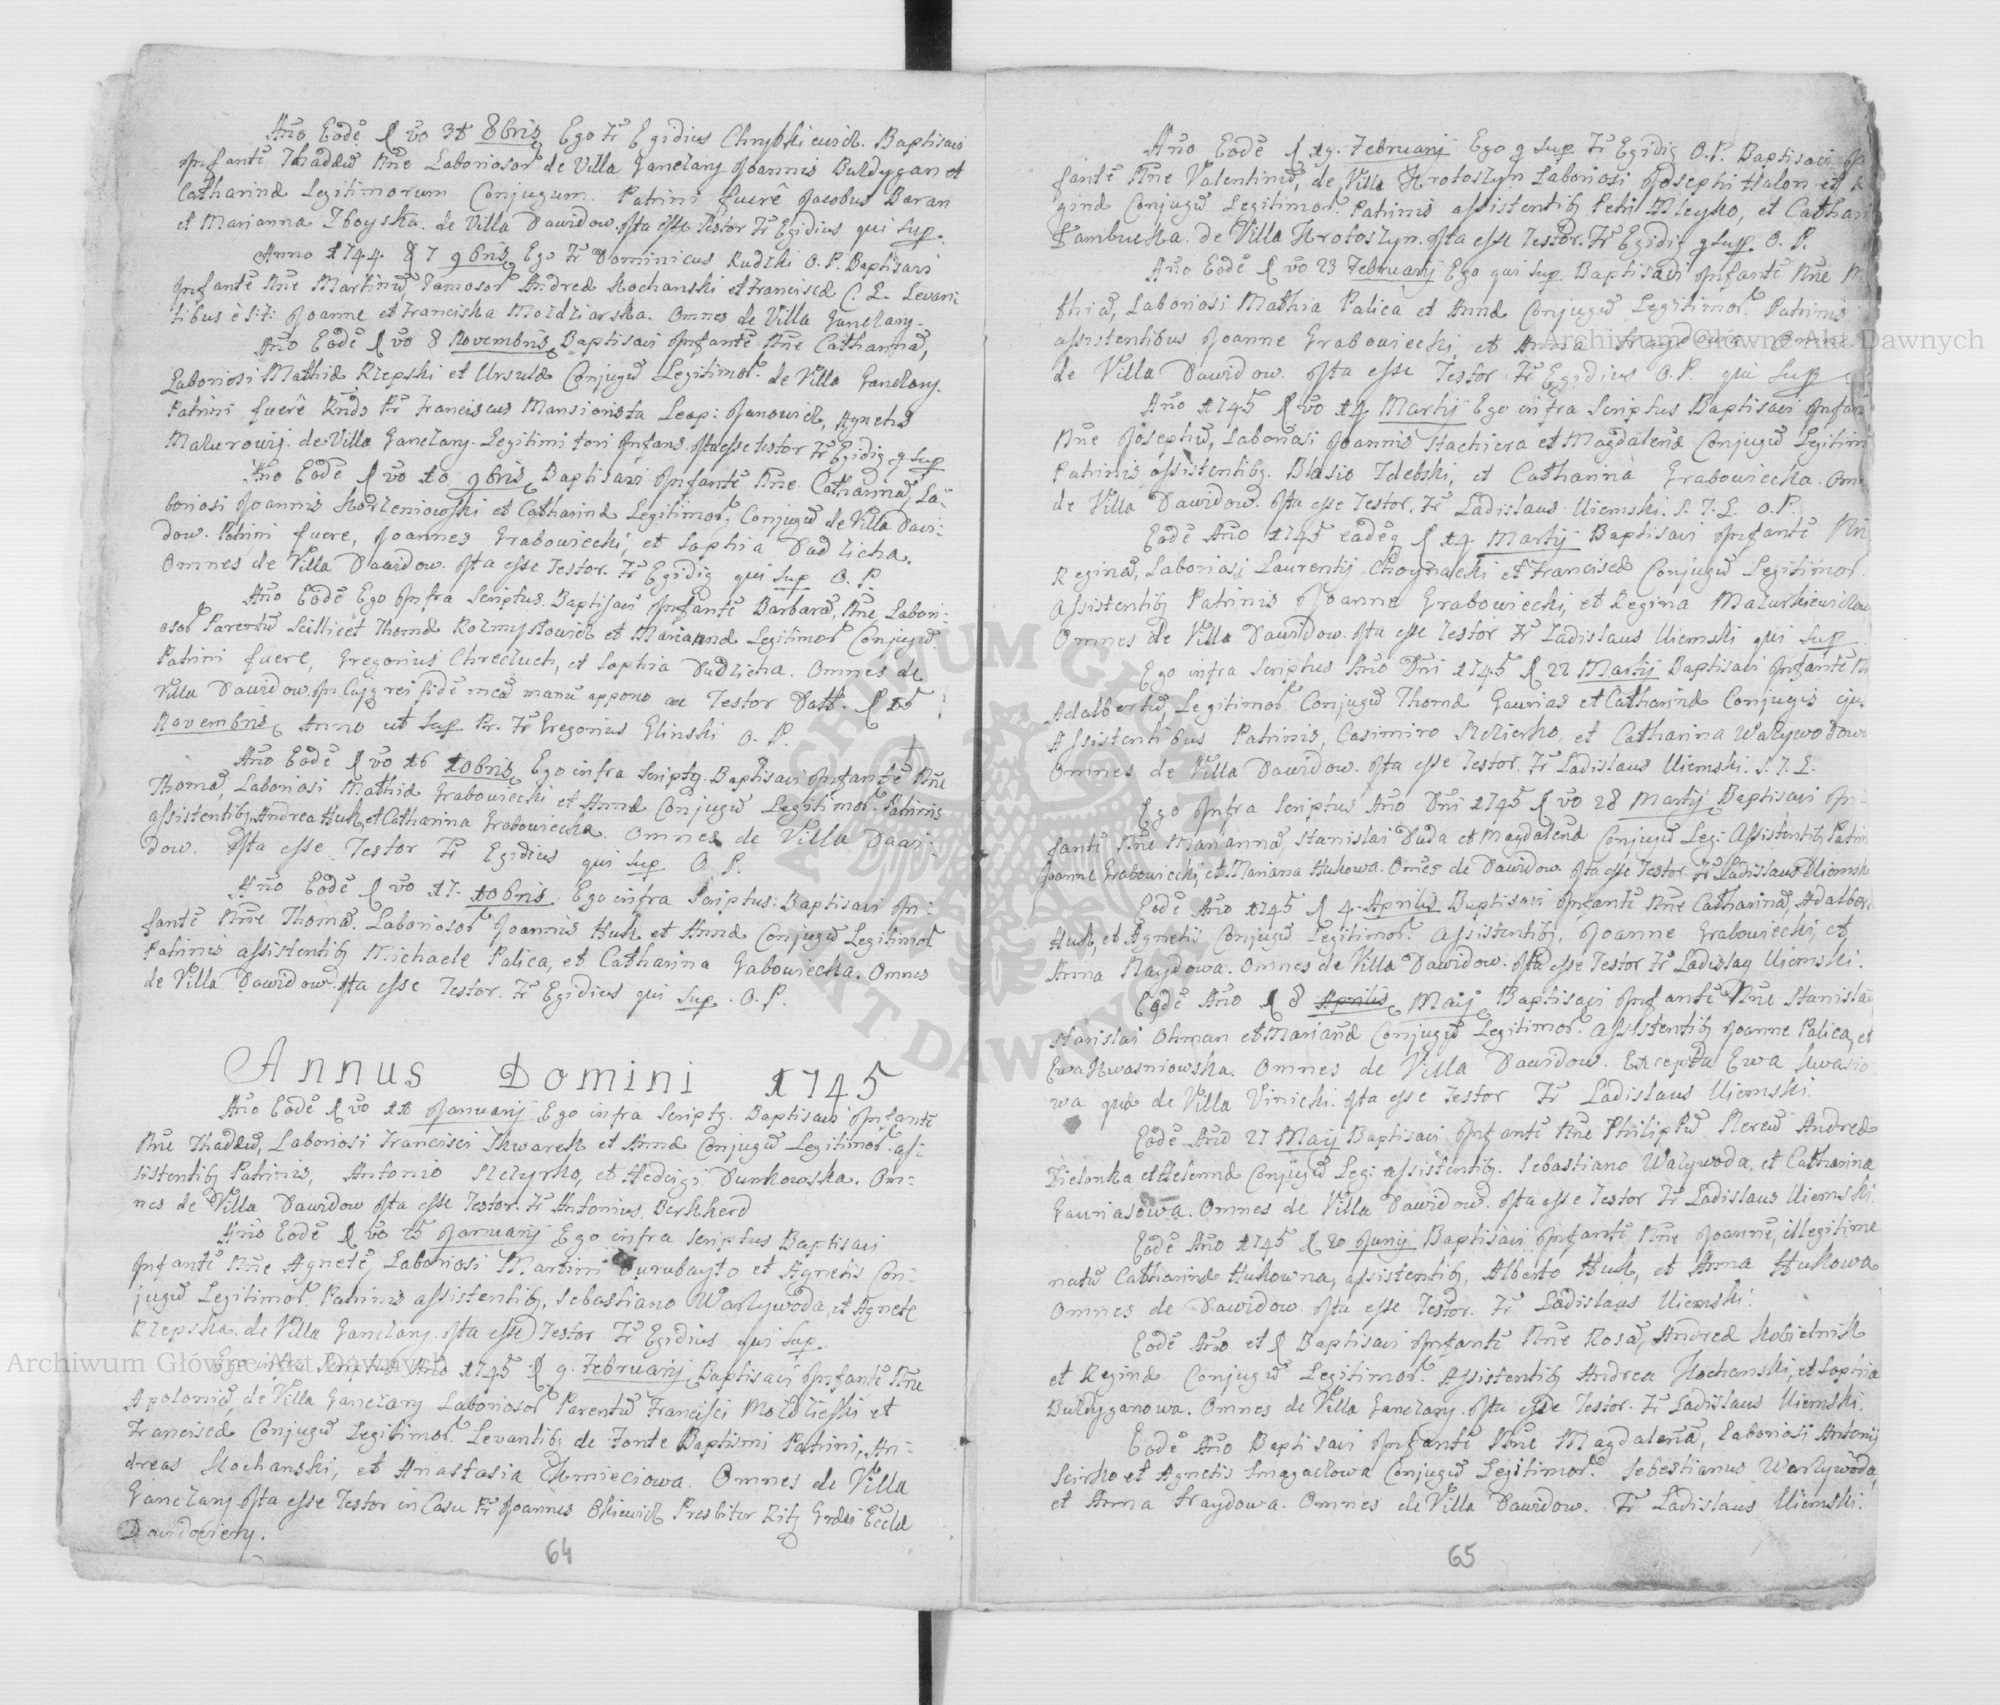 Año Eodē d vo 31 8bris Ego Fr Egidius Chrybkiewicz. Baptisavi
Infantē Thaddeū Nñe Laboriosor de Villa Ganczary Joannis Buldygan et
Catharinæ Legitimorum Conjugum. Patrini fuerē Jacobus Baran
et Marianna Zboyska. de Villa Dawidow. Ita esse Testor Fr Egidius qui sup.
Anno 1744 d 7 9bris Ego Fr Dominicus Rudzki O. P. Baptisavi
Infantē Nñe Martinū Famosor Andreæ Kochanski et Franciscæ C. L. Levan
tibus è S: F: Joanne et Franciska Mozdziarska. Omnes de Villa Ganczary.
Año Eodē d vo 8 Novembris Baptisavi Infantē Nñe Catharinā,
Laboriosi Mathiæ Rzepski et Ursulæ Conjugū Legitimor. de Villa Ganczary.
Patrini fuerê Rñds Pr Franciscus Mansionista Leop: Janowicz, Agnethis
Mazurowij. de Villa Ganczary. Legitimi tori Infans. Ita esse testor Fr Egidig q sup
Año Eodē d vo 10 9bris Baptisavi Infantē Nñe Catharinā, La-
boriosi Joannis Korzeniowski et Catharinæ Legitimor. Conjugū de Villa Dawi-
dow. Patrini fuere, Joannes Grabowiecki, et Sophia Dudzicha.
Omnes de Villa Dawidow. Ita esse Testor. Fr Egidig qui sup O. P.
Año Eodē Ego Infra Scriptus. Baptisavi Infantē Barbarā, Nñe Labori-
osor Parentū Scillicet Thomæ Rozmysłowicz et Mariannæ Legitimor Conjugū.
Patrini fuere, Gregorius Chrecziuch, et Sophia Dudzicha. Omnes de
Villa Dawidow. In cujg rei fidē meā manū appono ac Testor Datt. d 15
Novembris Anno ut sup Pr. Fr Gregorius Glinski O. P.
Año Eodē d vo 16 10bris Ego infra Scriptg. Baptisavi Infantē Nñe
Thomā, Laboriosi Mathiæ Grabowiecki et Annæ Conjugū Legitimor. Patrinis
assistentibg Andrea Huk, et Catharina Grabowiecka. Omnes de Villa Dawi-
dow. Ita esse Testor Fr Egidius qui sup O. P.
Año Eodē d vo 17. 10bris. Ego infra Scriptus: Baptisavi In-
fantē Nñe Thomā. Laboriosor Joannis Huk et Annæ Conjugū Legitimor
Patrinis assistentibg Michaele Palica, et Catharina Gabowiecka. Omnes
de Villa. Dawidow. Ita esse Testor. Fr Egidius qui sup. O. P.
Annus Domini 1745
Año Eodē d vo 11 Januarij Ego infra Scriptg. Baptisavi Infantē
Nñe Thaddeū, Laboriosi Francisci Skwarek et Annæ Conjugū Legitimor. as-
sistentibg Patrinis, Antonio Sczyrko, et Hedvigi Dunkowska. Om-
nes de Villa Dawidow Ita esse Testor. Fr Antonius Berkherd
Año Eodē d vo 25 Januarij Ego infra Scriptus Baptisavi
Infantē Nñe Agnetē, Laboriosi Martini Durubayło et Agnetis Con-
jugū Legitimor. Patrinis assistentibg, Sebastiano Warzywoda, et Agnete
Rzepska. de Villa Ganczary. Ita esse Testor Fr Egidius qui sup.
Ego infra Scriptus Año 1745 d 9. Februarij Baptisavi Infantē Nñe
Apoloniā, de Villa Ganczary Laboriosor Parentū Francisci Mozdzieski et
Franciscæ Conjugū Legitimor. Levantibg de Fonte Baptismi Patrini, An-
dreas Kochanski, et Anastasia Chmieciowa. Omnes de Villa
Ganczary. Ita esse Testor in Casu Pr Joannes Okiewicz Presbiter Ritg Græci Eccłæ
Davidoviens.
64
Año Eodē d 19. Februarij Ego q sup Fr Egidig O. P. Baptisavi In
fantē Nñe Valentinū, de Villa Krotoszyn Laboriosi Josephi Halon et R
ginæ Conjugū Legitimor. Patrinis assistentibg Petri Kleyko, et Cathari
Dambucka. de Villa Krotoszyn. Ita esse Testor. Fr Egidig q sup. O. P.
Año Eodē d vo 23 Februarij Ego qui sup. Baptisavi Infantē Nñe M
thiā, Laboriosi Mathia Palica et Annæ Conjugū Legitimor. Patrinis
assistentibus Joanne Grabowiecki, et Anna Fraydowa. Omnes
de Villa Dawidow. Ita esse Testor Fr Egidius O. P. qui sup
Año 1745 d vo 14 Martij Ego infra Scriptus Baptisavi Infan
Nñe Josephū, Laboriosi Joannis Stachiera et Magdalenæ Conjugū Legitim
Patrinis assistentibg. Blasio Zdebski, et Catharina Grabowiecka. Omn
de Villa Dawidow. Ita esse Testor. Fr Ladislaus Uiemski. S. T. L. O. P.
Eodē Año 1745 eadēq d 14 Martij Baptisavi Infantē Nñ
Reginā, Laboriosi Laurentij Choynacki et Franciscæ Conjugū Legitimor.
Assistentibg Patrinis Joanne Grabowiecki, et Regina Mazurkiewiczow
Omnes de Villa Dawidow. Ita esse Testor Fr Ladislaus Uiemski qui sup
Ego infra Scriptus Año Dñi 1745 d 22 Martij Baptisavi Infantē N
Adalbertū, Legitimor Conjugū Thomæ Gawrias et Catharinæ Conjugis ejus
Assistentibus Patrinis, Casimiro Sczierko, et Catharina Warzywodowa
Omnes de Villa Dawidow. Ita esse Testor. Fr Ladislaus Uiemski. S. T. L.
Ego Infra Scriptus Año Dñi 1745 d vo 28 Martij Baptisavi In-
fantē Nñe Mariannā, Stanislai Duda et Magdalenæ Conjugū Leg: Assistentibg Patrin
Joanne Grabowiecki, et Mariana Hukowa. Omēs de Dawidow. Ita esse Testor. Fr Ladislaus Uiemski
Eodē Año 1745 d 4. Aprilis Baptisavi Infantē Nñe Catharinā, Adalber
Huk, et Agnetis Conjugū Legitimor. Assistentibg, Joanne Grabowiecki, et,
Anna Naydowa. Omnes de Villa Dawidow. Ita esse Testor Fr Ladislag Uiemski.
Eodē Año d 8 Aprilis Maij Baptisavi Infantē Nñe Stanislau
Stanislai Ohman et Mariañæ Conjugū Legitimor. Assistentibg Joanne Palica, et
Ewa Kwasniowska. Omnes de Villa Dawidow. Excepta Ewa Kwasio-
wa quæ de Villa Vinicki. Ita esse Testor Fr Ladislaus Uiemski.
Eodē Año 27 Maij Baptisavi Infantē Nñe Philippū Nereū Andreæ
Zielonka et Helennæ Conjugū Leg: assistentibg. Sebastiano Warzywoda, et Catharina
Gauriasowa. Omnes de Villa Dawidow. Ita esse Testor Fr Ladislaus Uiemski.
Eodē Año 1745 d 20 Junij Baptisavi Infantē Nñe Joannē, illegitime
natū Catharinæ Hukowna, assistentibg, Alberto Huk, et Anna Hukowa
Omnes de Dawidow. Ita esse Testor. Fr Ladislaus Uiemski.
Eodē Año et d Baptisavi Infantē Nñe Rosā, Andreæ Kobielnik
et Reginæ Conjugū Legitimor. Assistentibg Andrea Kochanski, et Sophia
Buldyganowa. Omnes de Villa Ganczary. Ita esse Testor. Fr Ladislaus Uiemski.
Eodē Año Baptisavi Infantē Nñe Magdalenā, Laboriosi Antonij
Scirko et Agnetis Smagaczowa Conjugū Legitimor. Sebestianus Warzywoda,
et Anna Fraydowa. Omnes de Villa Dawidow. Fr Ladislaus Uiemski.
65
ARCHIWUM GŁÓWNE AKT DAWNYCH
Archiwum Główne Akt Dawnych
Archiwum Główne Akt Dawnych